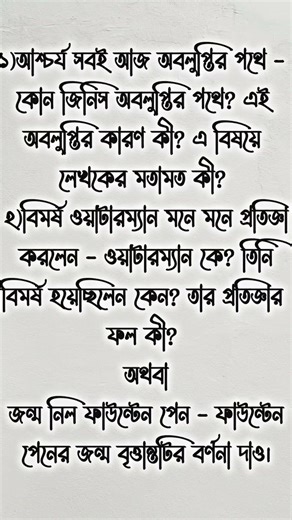 ১)আশ্চর্য সবই আজ অবলুপ্তির পথে -
কোন জিনিস অবলুপ্তির পথে? এই
অবলুপ্তির কারণ কী? এ বিষয়ে
লেখকের মতামত কী?
২)বিমর্ষ ওয়াটারম্যান মনে মনে প্রতিজ্ঞা
করলেন - ওয়াটারম্যান কে? তিনি
বিমর্ষ হয়েছিলেন কেন? তার প্রতিজ্ঞার
ফল কী?
অথবা
জন্ম নিল ফাউন্টেন পেন - ফাউন্টেন
পেনের জন্ম বৃত্তান্তটির বর্ণনা দাও।